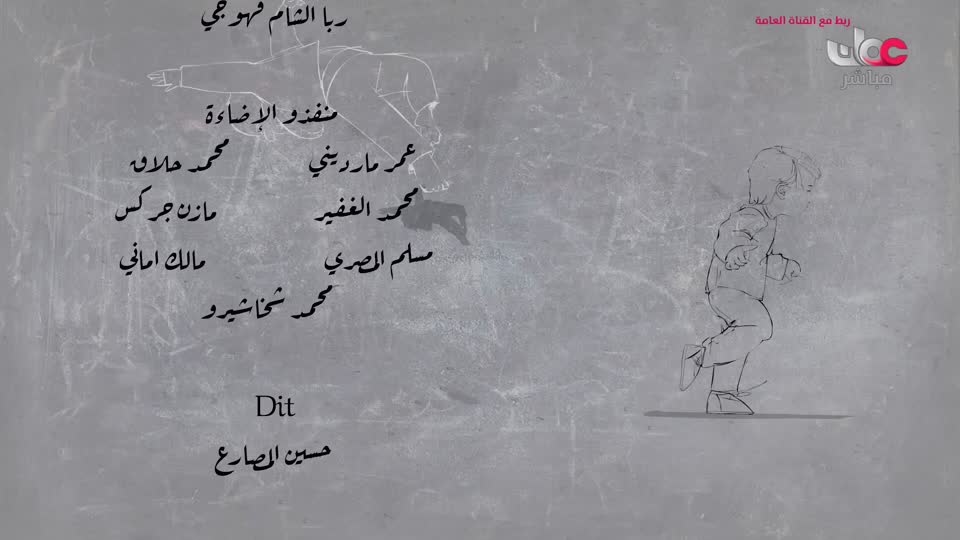 ربط مع القناة العامة
عمان
مباشر
ربا الشام قهوجي
منفذو الإضاءة
عمر مارديني محمد حلاق
محمد الغفير مازن جركس
مسلم المصري مالك اماني
محمد شخاشيرو
Dit
حسين المصارع